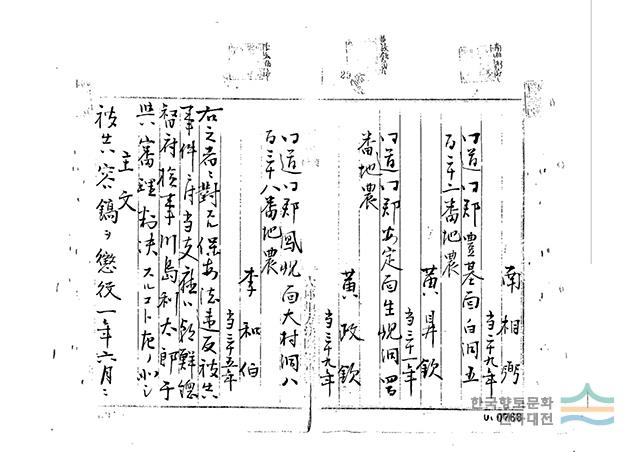 南相弼
当三十九年
仝道仝郡豊基面白洞五
百三十二番地農
黄昇欽
当三十一年
仝道仝郡安定面生峴洞
番地農
黄政欽
当三十九年
仝道仝郡鳳峴面大村洞八
百三十八番地農
李和伯
当三十五年
右之者ニ対スル保安法違反被告
事件ニ付当支庁ハ朝鮮総
督府検事川島和太郎干
與審理判決スルコト左ノ如シ
主文
被告容鎬ヲ懲役一年六月ニ
한국향토문화
전자대전
0768